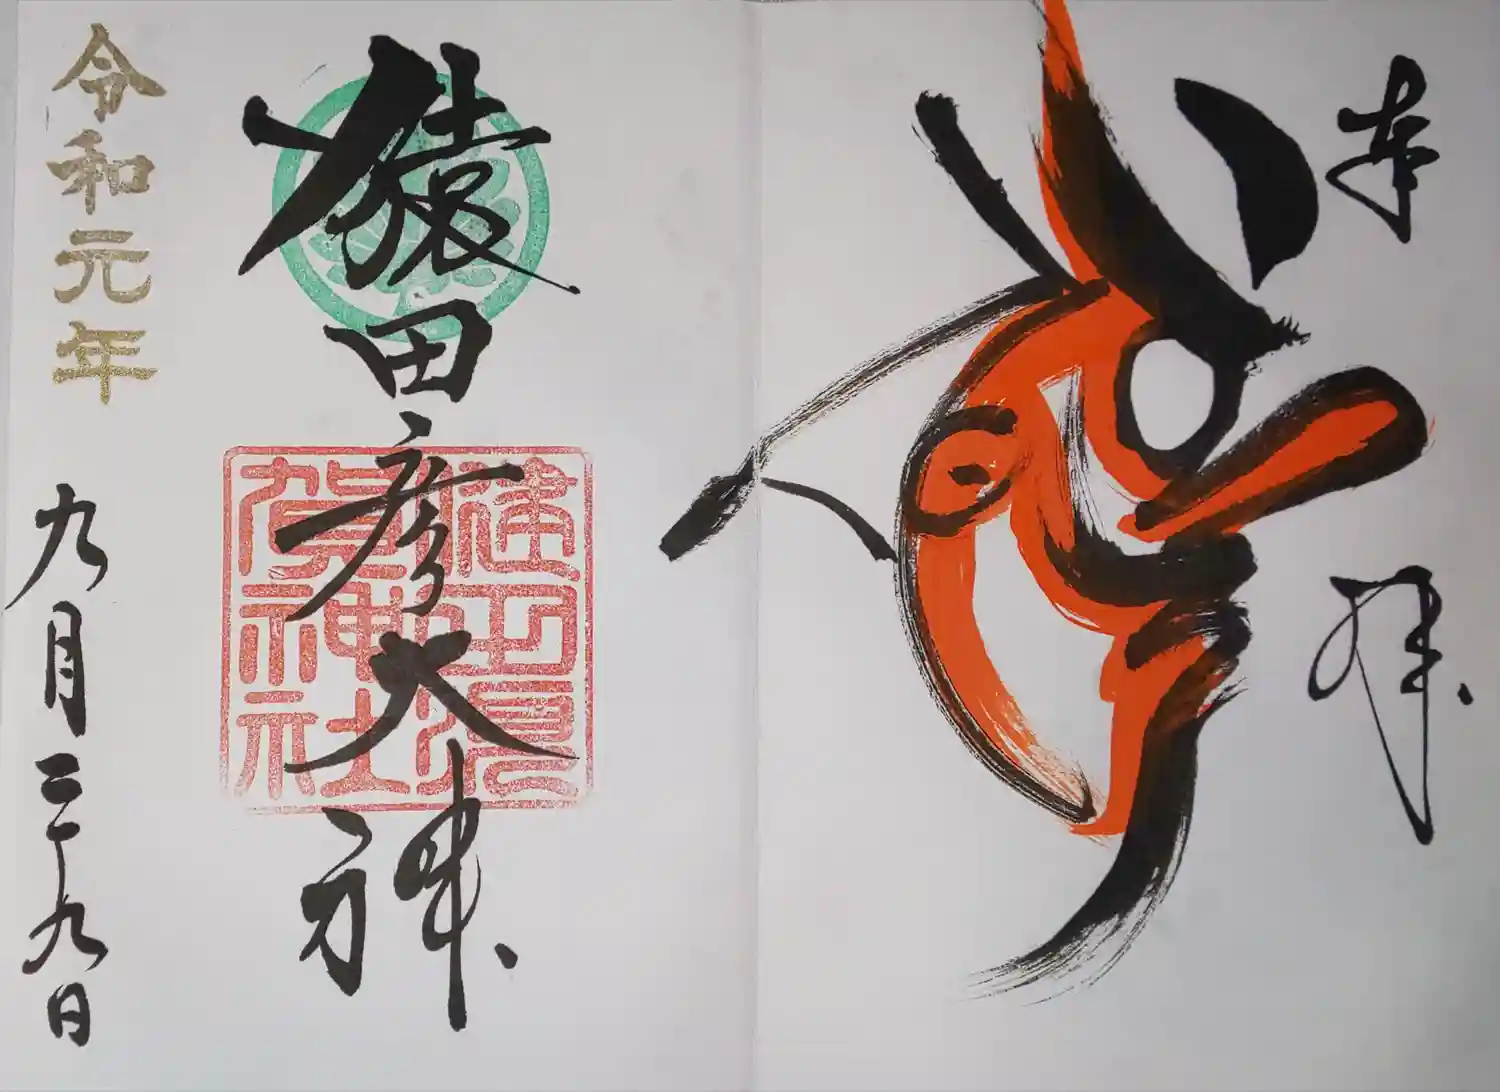 奉拝
猿田彦大神
健田須
賀神社
令和元年
九月二十九日